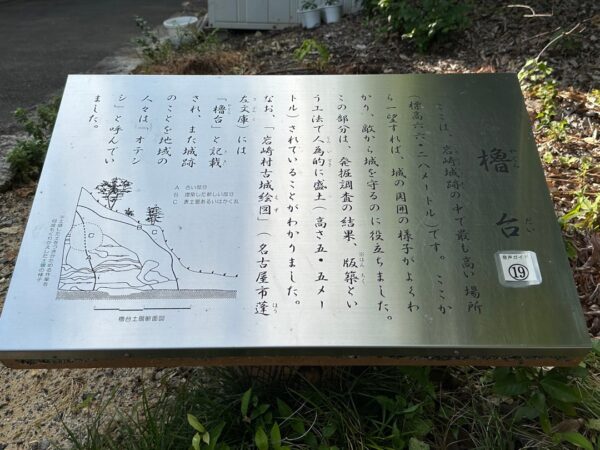 櫓台
やぐらだい
音声ガイド
19
ここは、岩崎城跡の中で最も高い場所
(標高六六・二八メートル)です。ここか
ら一望すれば、城の周囲の様子がよくわ
かり、敵から城を守るのに役立ちました。
この部分は、発掘調査の結果、版築とい
はんちく
う工法で人為的に盛土(高さ五・五メー
トル)されていることがわかりました。
なお、「岩崎村古城絵図」(名古屋市蓬
左文庫)には
「櫓台」と記載
され、また城跡
のことを地域の
人々は「オテン
シ」と呼んでい
ました。
A 古い盛り
B 増築した新しい盛り
C 表土層あるいはかく乱
櫓台土層断面図